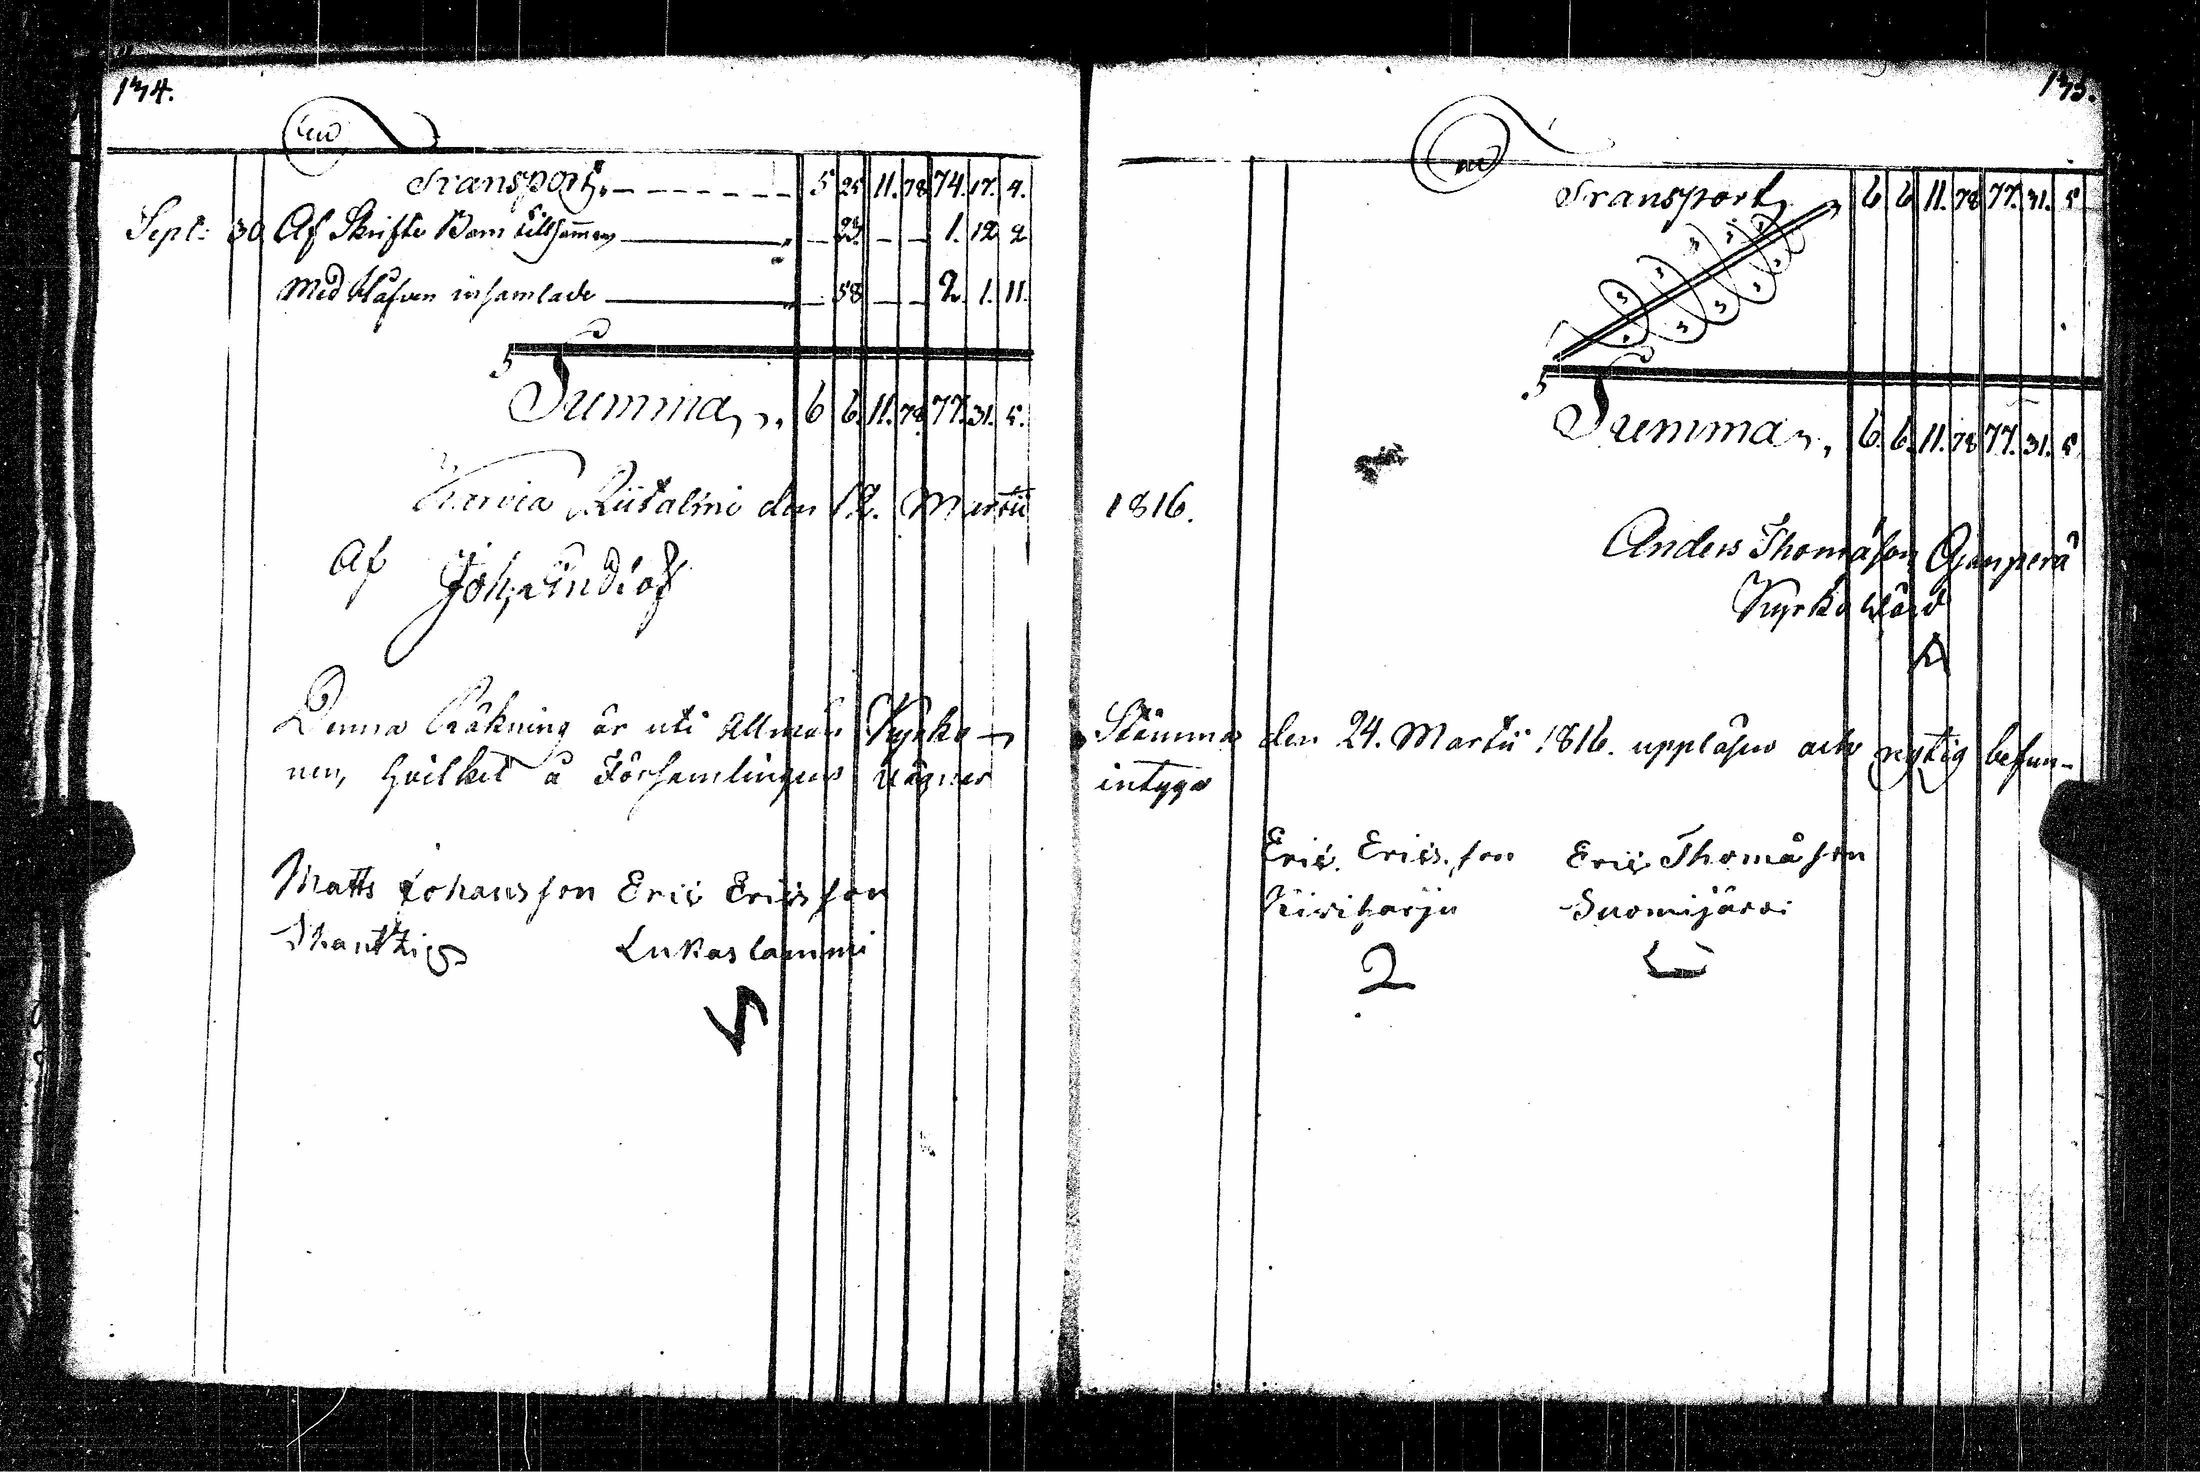 134.
Transport 5 25 11. 78 74. 17. 4.
Sept: 30 Af Skrifte Barn tillsamman 23. 1. 12 2
Med Håfven insamlade 58 2. 1. 11.
Summa 6 6. 11. 78 77. 31. 5.
Karvia Riitalmi den 12. Martii
Af Joh. Lindlöf
Denna Räkning är uti Allmän Kyrko-
nen, hvilket å Församlingens vägnar
Matts Johansson Eric Ericsson
Lukaslammi
135.
Transport 6 6 11. 78 77. 31. 5
Summa 6. 6. 11. 78 77. 31. 5
1816.
Anders Thomasson Ojanperä
Kyrkowärd
Stämma den 24. Martii 1816. uppläsen och rigtig befun-
intyga
Eric Ericsson Eric Thomasson
Kiviharju Suomijärvi